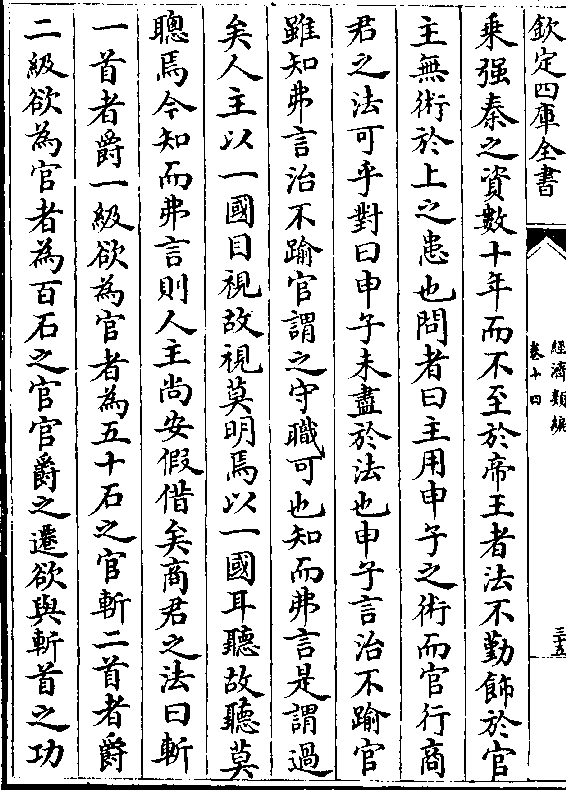 欽定四庫全書
經濟類編
卷十四
三十五
乘强秦之資數十年而不至於帝王者法不勤飾於官
主無術於上之患也問者曰主用申子之術而官行商
君之法可乎對曰申子未盡於法也申子言治不踰官
雖知弗言治不踰官謂之守職可也知而弗言是謂過
矣人主以一國目視故視莫明焉以一國耳聽故聽莫
聰焉今知而弗言則人主尚安假借矣商君之法曰斬
一首者爵一級欲為官者為五十石之官斬二首者爵
二級欲為官者為百石之官官爵之遷欲與斬首之功